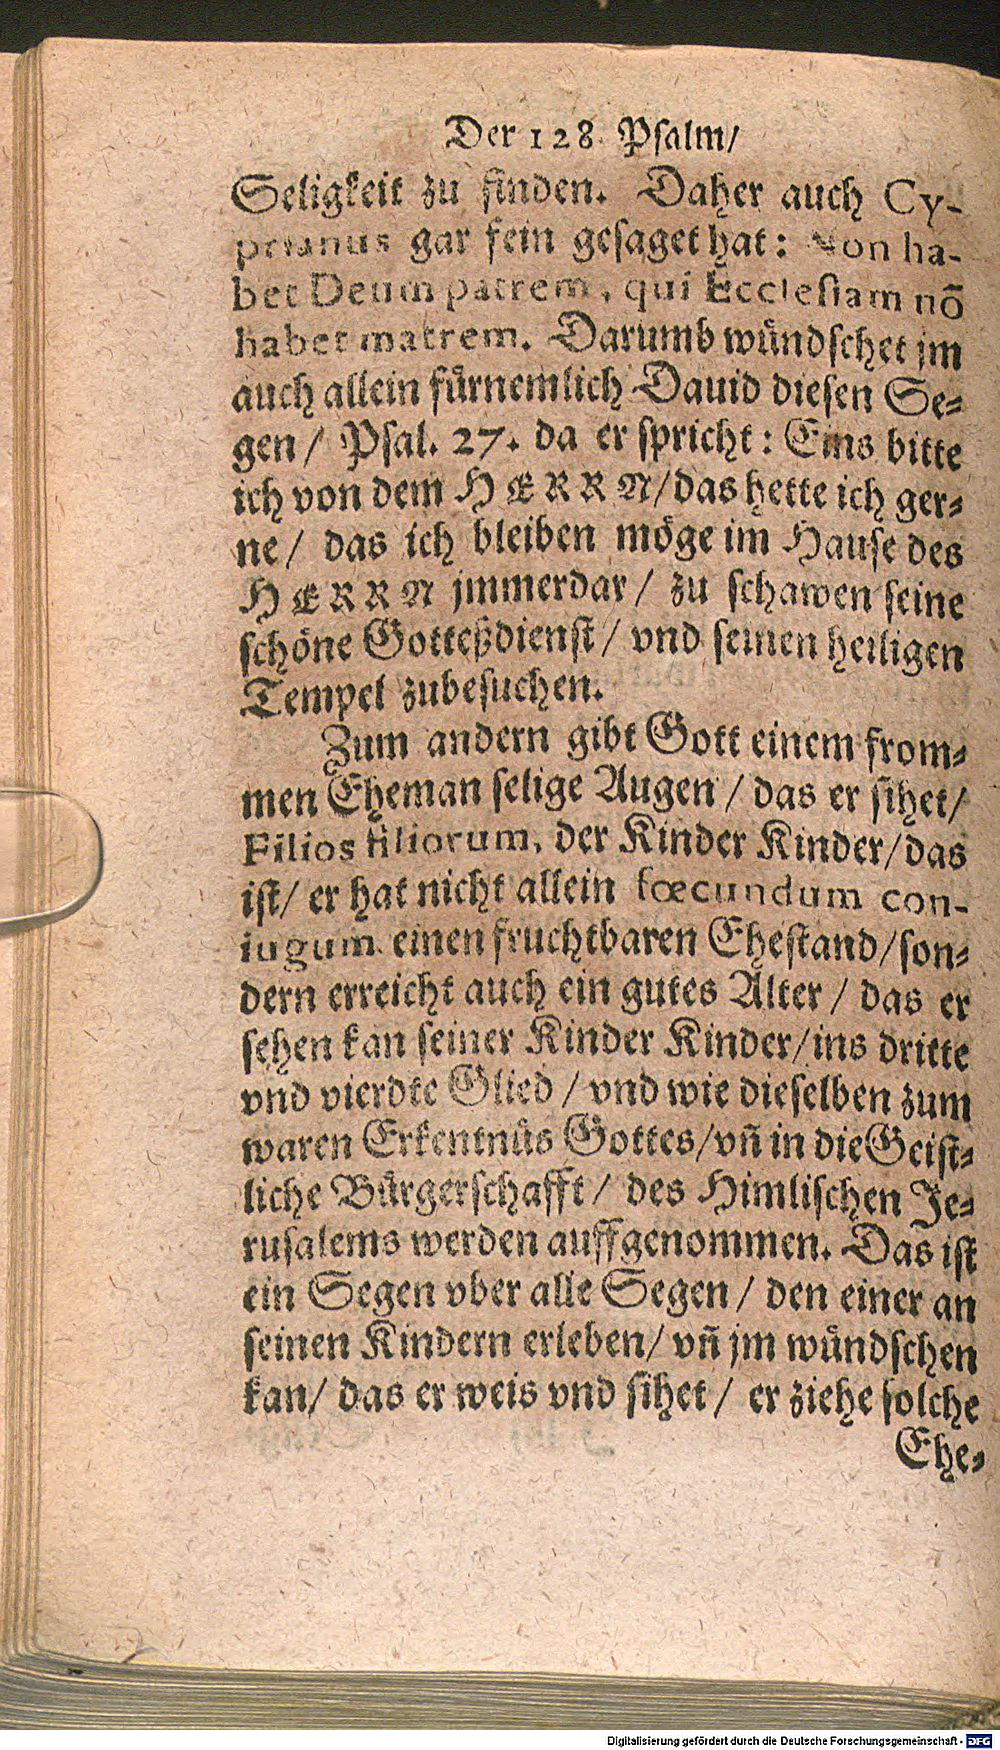 Der 128 Psalm/
Seligkeit zu finden. Daher auch Cy-
prianus gar fein gesaget hat: Non ha-
bet Deum patrem, qui Ecclesiam nō
habet matrem. Darumb wuͤndschet jm
auch allein fuͤrnemlich Dauid diesen Se-
gen/ Psal. 27. da er spricht: Eins bitte
ich von dem HERRN/das hette ich ger-
ne/ das ich bleiben moͤge im Hause des
HERRN jmmerdar/ zu schawen seine
schoͤne Gotteßdienst/ vnd seinen heiligen
Tempel zubesuchen.
Zum andern gibt Gott einem from-
men Eheman selige Augen/ das er sihet/
Filios filiorum, der Kinder Kinder/das
ist/ er hat nicht allein fœcundum con-
iugum einen fruchtbaren Ehestand/son-
dern erreicht auch ein gutes Alter/ das er
sehen kan seiner Kinder Kinder/ins dritte
vnd vierdte Glied/vnd wie dieselben zum
waren Erkentnuͤs Gottes/vn̄ in die Geist-
liche Buͤrgerschafft/ des Himlischen Je-
rusalems werden auffgenommen. Das ist
ein Segen vber alle Segen/ den einer an
seinen Kindern erleben/ vn̄ jm wuͤndschen
kan/ das er weis vnd sihet/ er ziehe solche
Ehe-
Digitalisierung gefördert durch die Deutsche Forschungsgemeinschaft - DFG